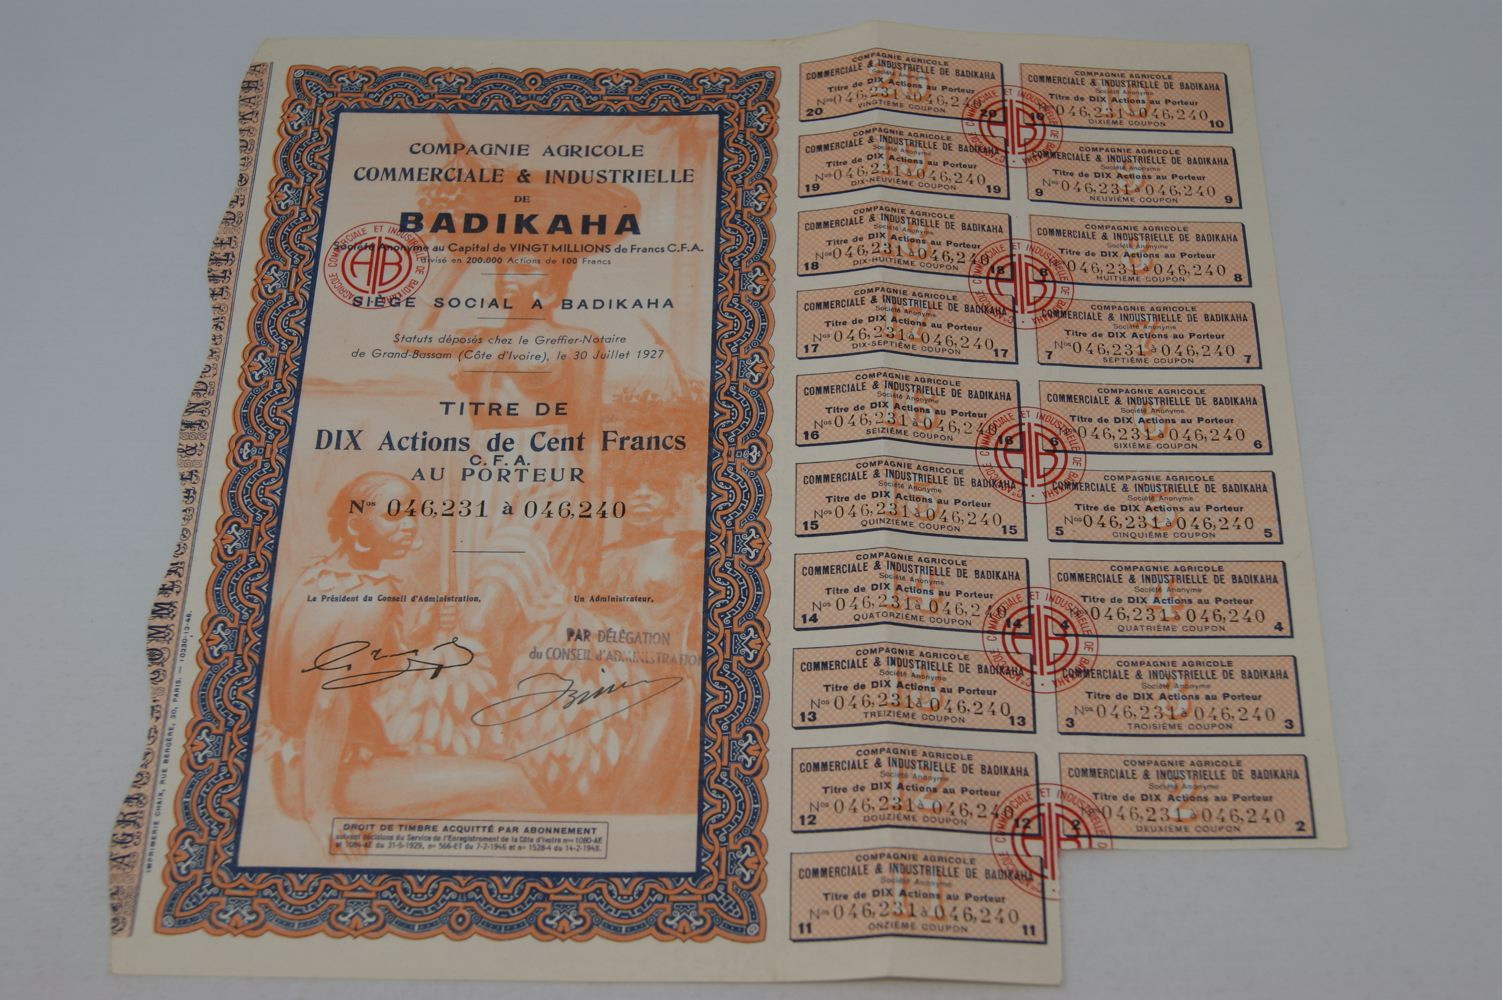 COMPAGNIE AGRICOLE
COMMERCIALE & INDUSTRIELLE
DE
BADIKAHA
Société Anonyme au Capital de VINGT MILLIONS de Francs C.F.A.
divisé en 200.000 Actions de 100 Francs
SIÈGE SOCIAL A BADIKAHA
Statuts déposés chez le Greffier-Notaire
de Grand-Bassam (Côte d'Ivoire), le 30 Juillet 1927
TITRE DE
DIX Actions de Cent Francs
C.F.A.
AU PORTEUR
Nos 046,231 à 046,240
Le Président du Conseil d'Administration,
Un Administrateur,
PAR DÉLÉGATION
du CONSEIL d'ADMINISTRATION
DROIT DE TIMBRE ACQUITTÉ PAR ABONNEMENT
suivant décisions du Service de l'Enregistrement de la Côte d'Ivoire nos 1080-AE
et 1084-AE du 31-5-1929, n° 566-ET du 7-2-1946 et n° 1528-4 du 14-2-1948.
IMPRIMERIE CHAIX, RUE BERGÈRE, 20, PARIS.
COMPAGNIE AGRICOLE
COMMERCIALE & INDUSTRIELLE DE BADIKAHA
Société Anonyme
Titre de DIX Actions au Porteur
Nos 046,231 à 046,240
20 VINGTIÈME COUPON 20
COMPAGNIE AGRICOLE
COMMERCIALE & INDUSTRIELLE DE BADIKAHA
Société Anonyme
Titre de DIX Actions au Porteur
046,231 à 046,240
10 DIXIÈME COUPON 10
COMPAGNIE AGRICOLE
COMMERCIALE & INDUSTRIELLE DE BADIKAHA
Société Anonyme
Titre de DIX Actions au Porteur
Nos 046,231 à 046,240
19 DIX-NEUVIÈME COUPON 19
COMPAGNIE AGRICOLE
COMMERCIALE & INDUSTRIELLE DE BADIKAHA
Société Anonyme
Titre de DIX Actions au Porteur
Nos 046,231 à 046,240
9 NEUVIÈME COUPON 9
COMPAGNIE AGRICOLE
COMMERCIALE & INDUSTRIELLE DE BADIKAHA
Société Anonyme
Titre de DIX Actions au Porteur
Nos 046,231 à 046,240
18 DIX-HUITIÈME COUPON 18
COMPAGNIE AGRICOLE
COMMERCIALE & INDUSTRIELLE DE BADIKAHA
Société Anonyme
Titre de DIX Actions au Porteur
046,231 à 046,240
8 HUITIÈME COUPON 8
COMPAGNIE AGRICOLE
COMMERCIALE & INDUSTRIELLE DE BADIKAHA
Société Anonyme
Titre de DIX Actions au Porteur
Nos 046,231 à 046,240
17 DIX-SEPTIÈME COUPON 17
COMPAGNIE AGRICOLE
COMMERCIALE & INDUSTRIELLE DE BADIKAHA
Société Anonyme
Titre de DIX Actions au Porteur
Nos 046,231 à 046,240
7 SEPTIÈME COUPON 7
COMPAGNIE AGRICOLE
COMMERCIALE & INDUSTRIELLE DE BADIKAHA
Société Anonyme
Titre de DIX Actions au Porteur
Nos 046,231 à 046,240
16 SEIZIÈME COUPON 16
COMPAGNIE AGRICOLE
COMMERCIALE & INDUSTRIELLE DE BADIKAHA
Société Anonyme
Titre de DIX Actions au Porteur
046,231 à 046,240
6 SIXIÈME COUPON 6
COMPAGNIE AGRICOLE
COMMERCIALE & INDUSTRIELLE DE BADIKAHA
Société Anonyme
Titre de DIX Actions au Porteur
Nos 046,231 à 046,240
15 QUINZIÈME COUPON 15
COMPAGNIE AGRICOLE
COMMERCIALE & INDUSTRIELLE DE BADIKAHA
Société Anonyme
Titre de DIX Actions au Porteur
Nos 046,231 à 046,240
5 CINQUIÈME COUPON 5
COMPAGNIE AGRICOLE
COMMERCIALE & INDUSTRIELLE DE BADIKAHA
Société Anonyme
Titre de DIX Actions au Porteur
Nos 046,231 à 046,240
14 QUATORZIÈME COUPON 14
COMPAGNIE AGRICOLE
COMMERCIALE & INDUSTRIELLE DE BADIKAHA
Société Anonyme
Titre de DIX Actions au Porteur
046,231 à 046,240
4 QUATRIÈME COUPON 4
COMPAGNIE AGRICOLE
COMMERCIALE & INDUSTRIELLE DE BADIKAHA
Société Anonyme
Titre de DIX Actions au Porteur
Nos 046,231 à 046,240
13 TREIZIÈME COUPON 13
COMPAGNIE AGRICOLE
COMMERCIALE & INDUSTRIELLE DE BADIKAHA
Société Anonyme
Titre de DIX Actions au Porteur
Nos 046,231 à 046,240
3 TROISIÈME COUPON 3
COMPAGNIE AGRICOLE
COMMERCIALE & INDUSTRIELLE DE BADIKAHA
Société Anonyme
Titre de DIX Actions au Porteur
Nos 046,231 à 046,240
12 DOUZIÈME COUPON 12
COMPAGNIE AGRICOLE
COMMERCIALE & INDUSTRIELLE DE BADIKAHA
Société Anonyme
Titre de DIX Actions au Porteur
046,231 à 046,240
2 DEUXIÈME COUPON 2
COMPAGNIE AGRICOLE
COMMERCIALE & INDUSTRIELLE DE BADIKAHA
Société Anonyme
Titre de DIX Actions au Porteur
Nos 046,231 à 046,240
11 ONZIÈME COUPON 11